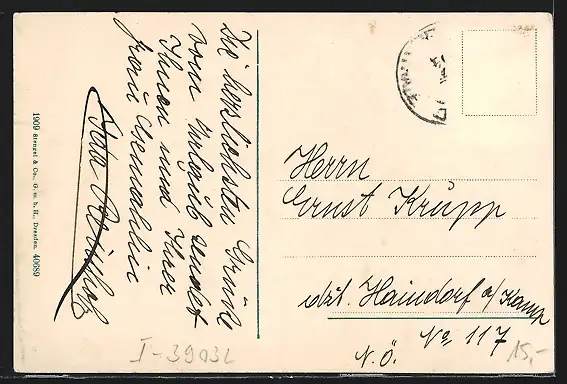 Die herzlichsten Grüße
vom Urlaub sendet
Ihnen und Ihrer
Frau Gemahlin
1909 Stengel & Co., G. m. b. H., Dresden. 40689
Herrn
Ernst Krupp
dzt. Haindorf a/Kamp
No 117
N.Ö.
I-39032
15,-